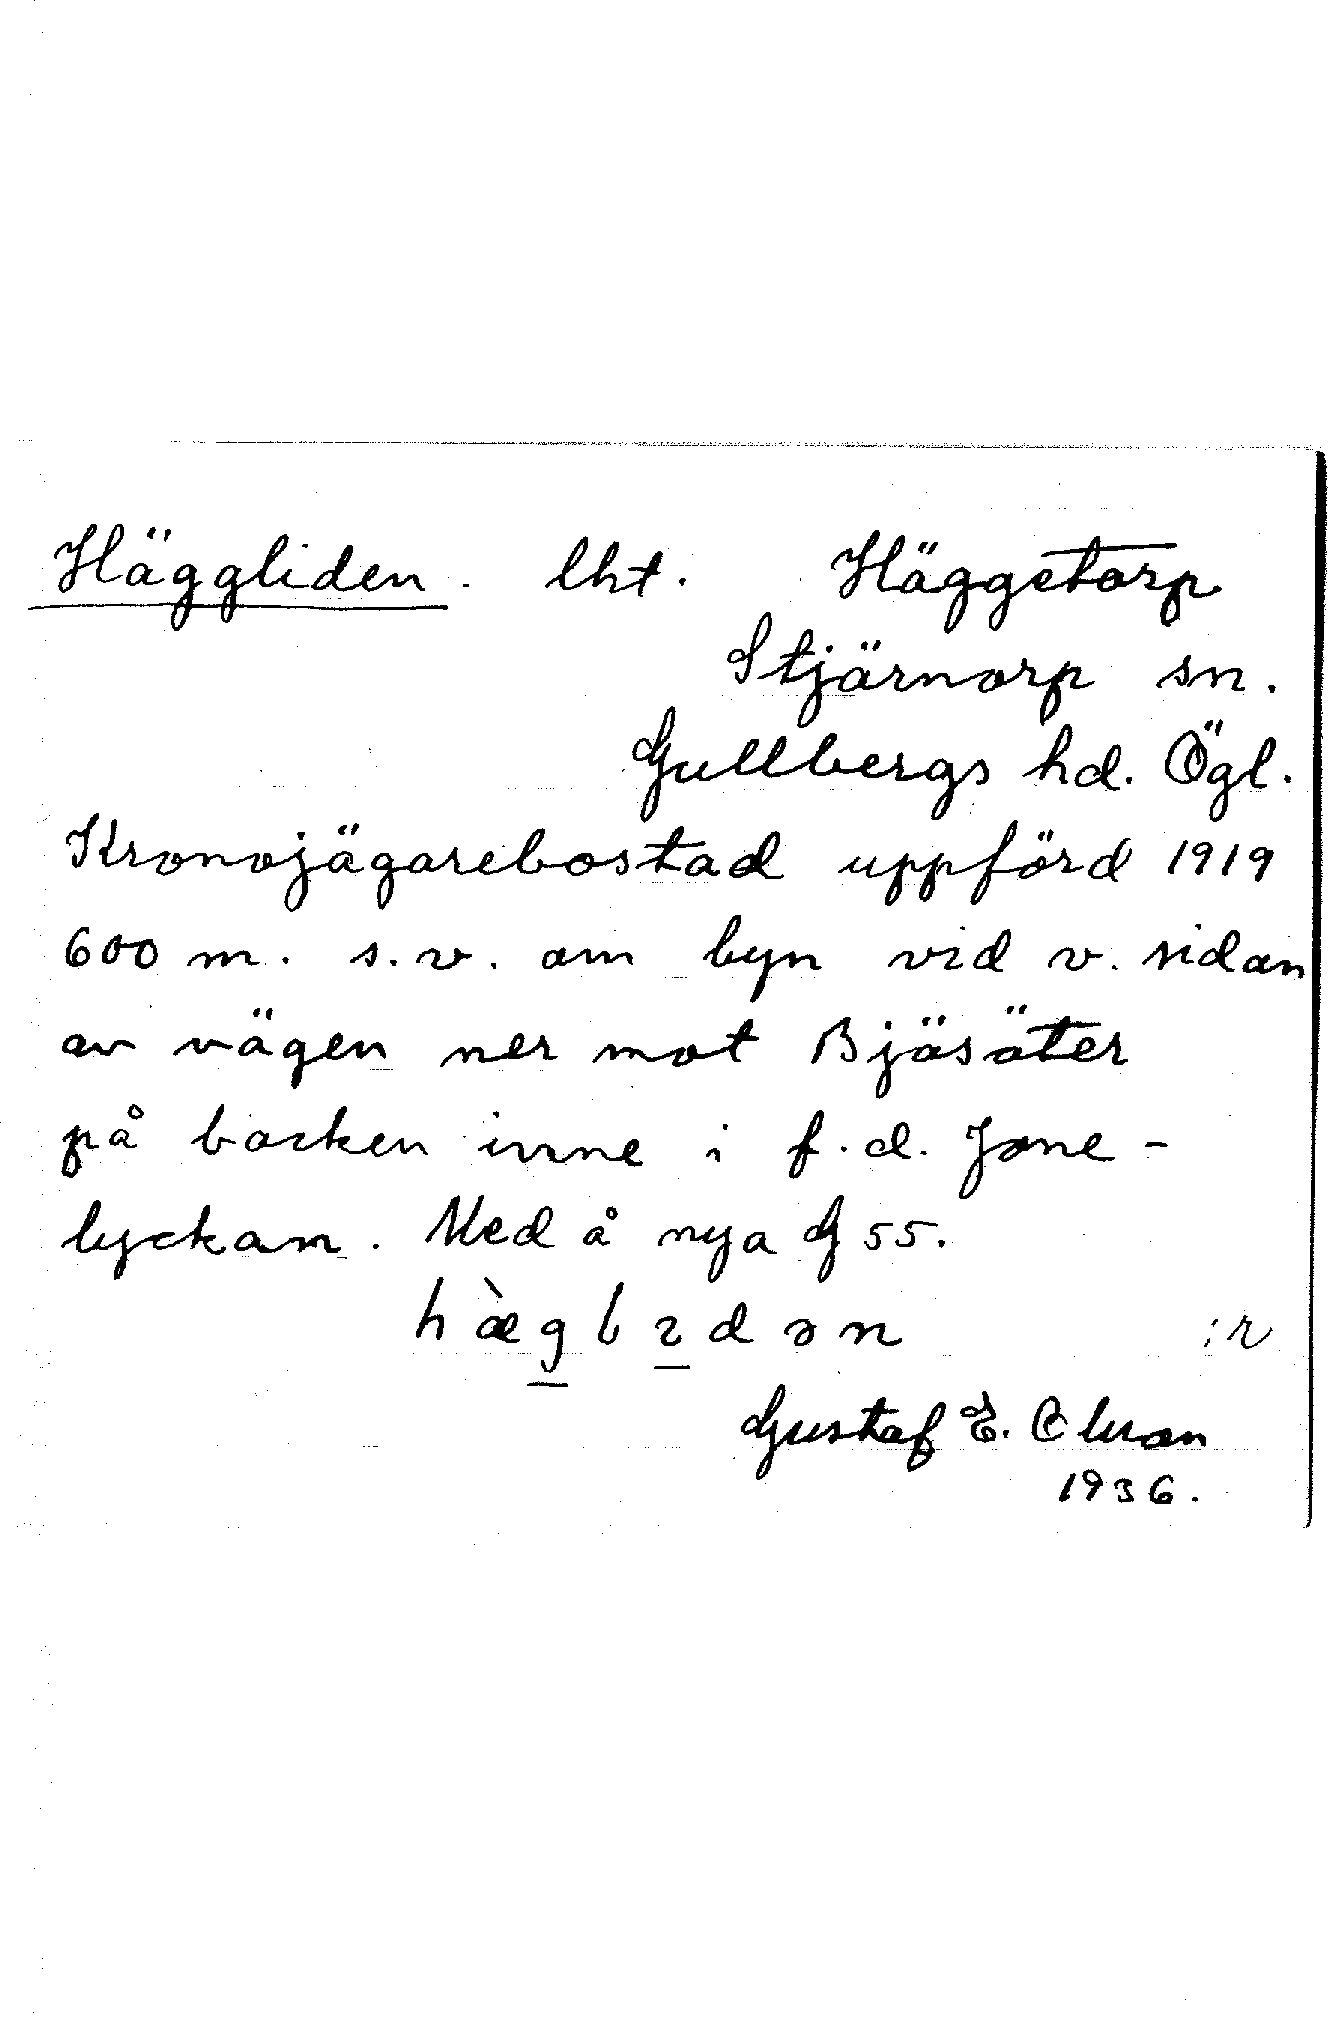 Häggliden. lht. Häggetorp
Stjärnorp sn.
Gullbergs hd. Ögl.
Kronojägarebostad uppförd 1919
600 m. s.v. om byn vid v. sidan
av vägen ner mot Bjäsäter
på backen inne i f.d. Jone-
lyckan. Med å nya G 55.
hæ̀glıdən :r
Gustaf E. Olsson
1936.